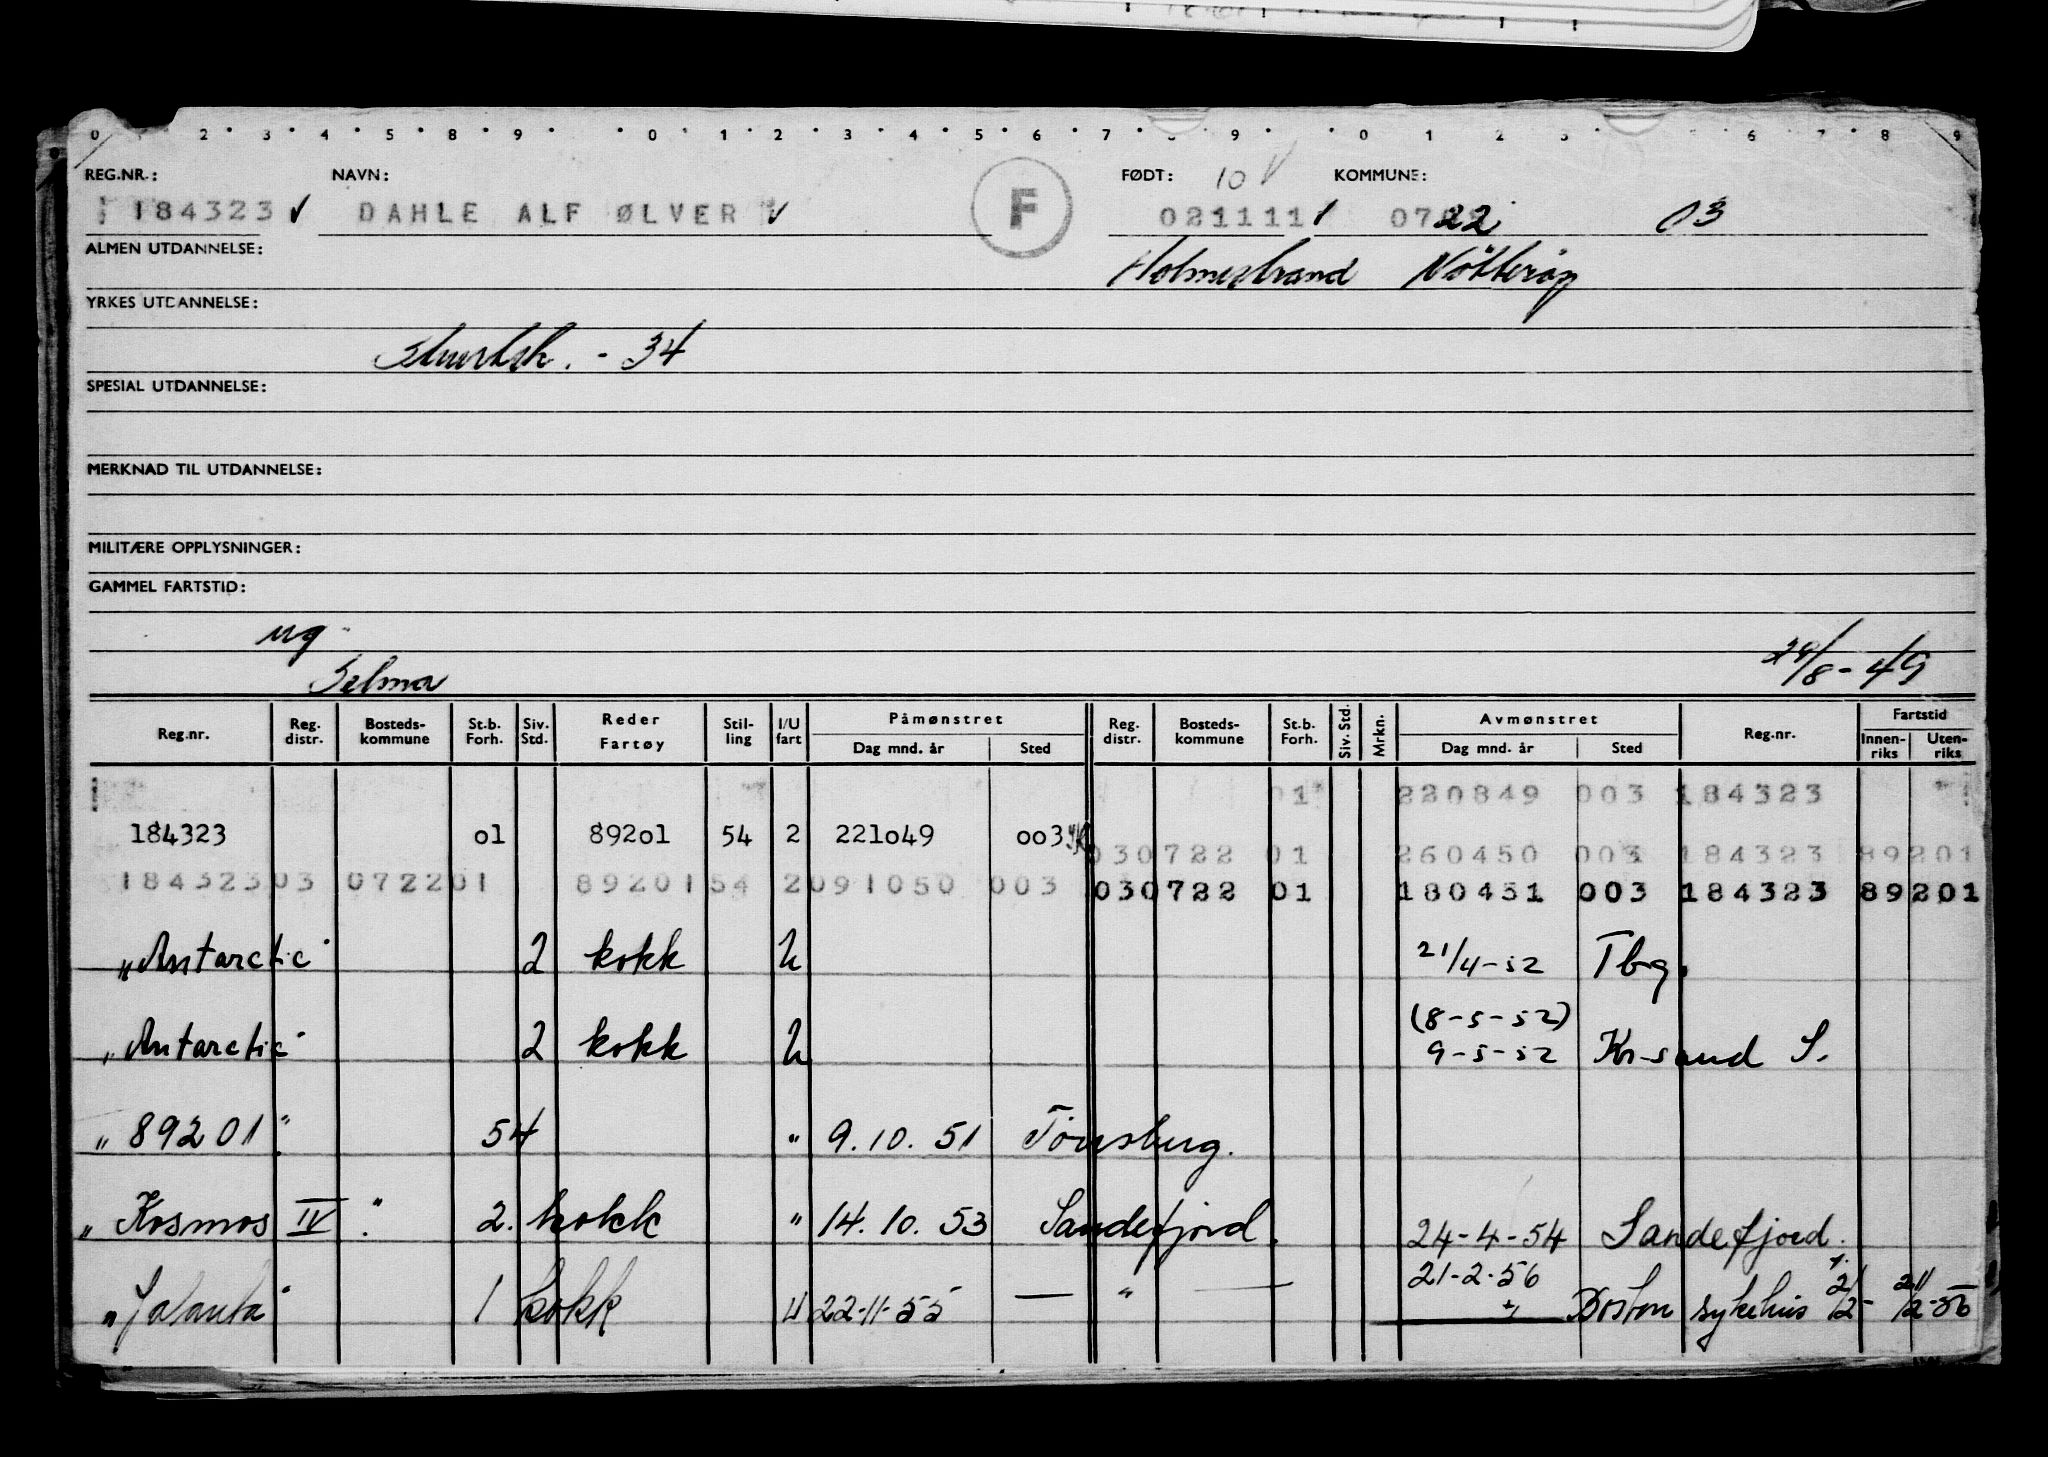 0 2 3 4 5 8 9 0 1 2 3 4 5 6 7 9 0 1 2 6 7 8 9
REG.NR.: NAVN: FØDT: 10 KOMMUNE:
184323 ✓ DAHLE ALF ØLVER ✓ F 021111 0722 03
ALMEN UTDANNELSE: Holmestrand Nötteröy
YRKES UTDANNELSE:
Stuertsk. - 34
SPESIAL UTDANNELSE:
MERKNAD TIL UTDANNELSE:
MILITÆRE OPPLYSNINGER:
GAMMEL FARTSTID:
ug
Selma /8-49
Reg.nr. Reg. distr. Bosteds-kommune St.b. Forh. Siv. Std. Reder Fartøy Stil-ling I/U fart Påmønstret Dag mnd. år Sted Reg. distr. Bosteds-kommune St.b. Forh. Siv. Std. Mrkn. Avmønstret Dag mnd. år Sted Reg.nr. Fartstid Innen-riks Uten-riks
01 220849 003 184323
184323 01 89201 54 2 221049 003
030722 01 260450 003 184323 89201
184323 03 0722 01 89201 54 2 091050 003 030722 01 180451 003 184323 89201
"Antarctic" 2 kokk U 21/4-52 Tbg.
"Antarctic" 2 kokk U (8-5-52)
9-5-52 Kr-sand S.
"89201" 54 " 9.10.51 Tönsberg.
"Kosmos IV" 2. kokk " 14.10.53 Sandefjord. 24-4-54 Sandefjord.
"Jalanta" 1 kokk U 22-11-55 — " — 21-2-56 Boston sykehus 21/2- 21/2-56